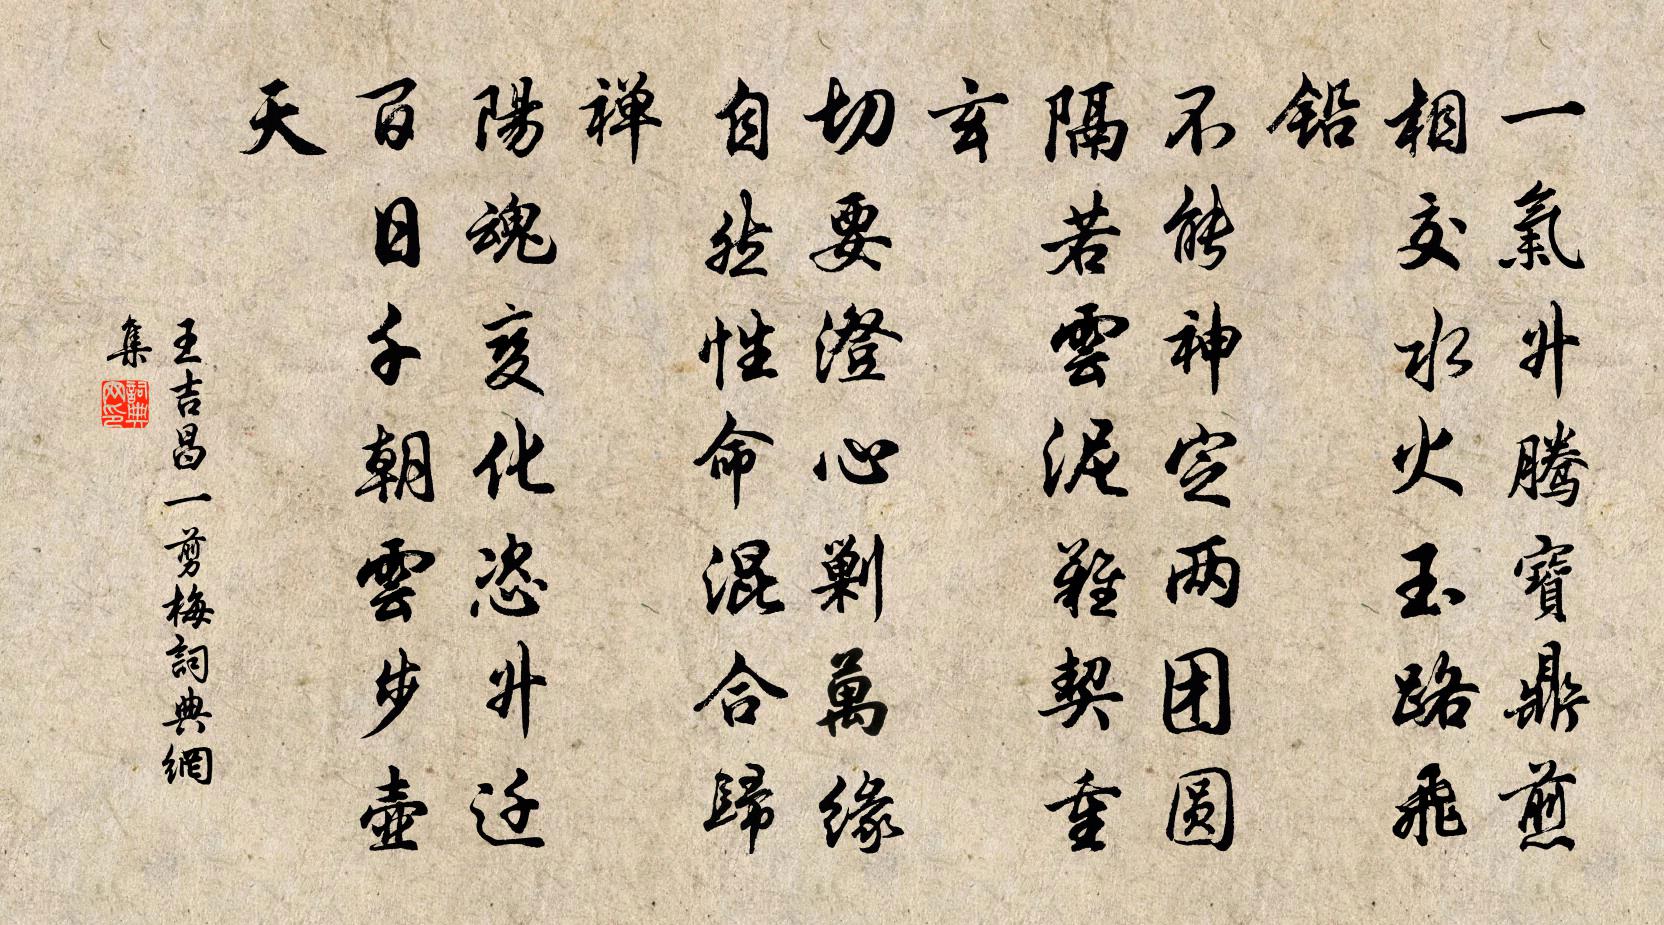 一氣升騰寶鼎煎
相交水火玉路飛
铅
不能神定两团圆
隔若雲泥難契重
玄
切要澄心剿萬緣
自然性命混合歸
禅
陽魂变化恣升迁
百日千朝雲步壺
天
王吉昌一剪梅詞典網
集
詞典
网印